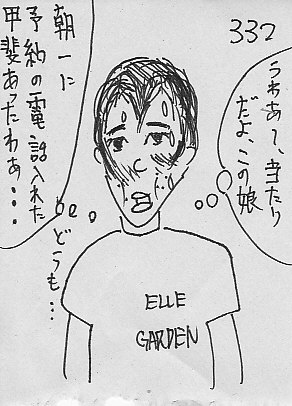 332
うわあ〜、当たり
だよ、この娘
朝一に
予約の電話入れた
甲斐あったわぁ・・・
どうも・・・
ELLE
GARDEN